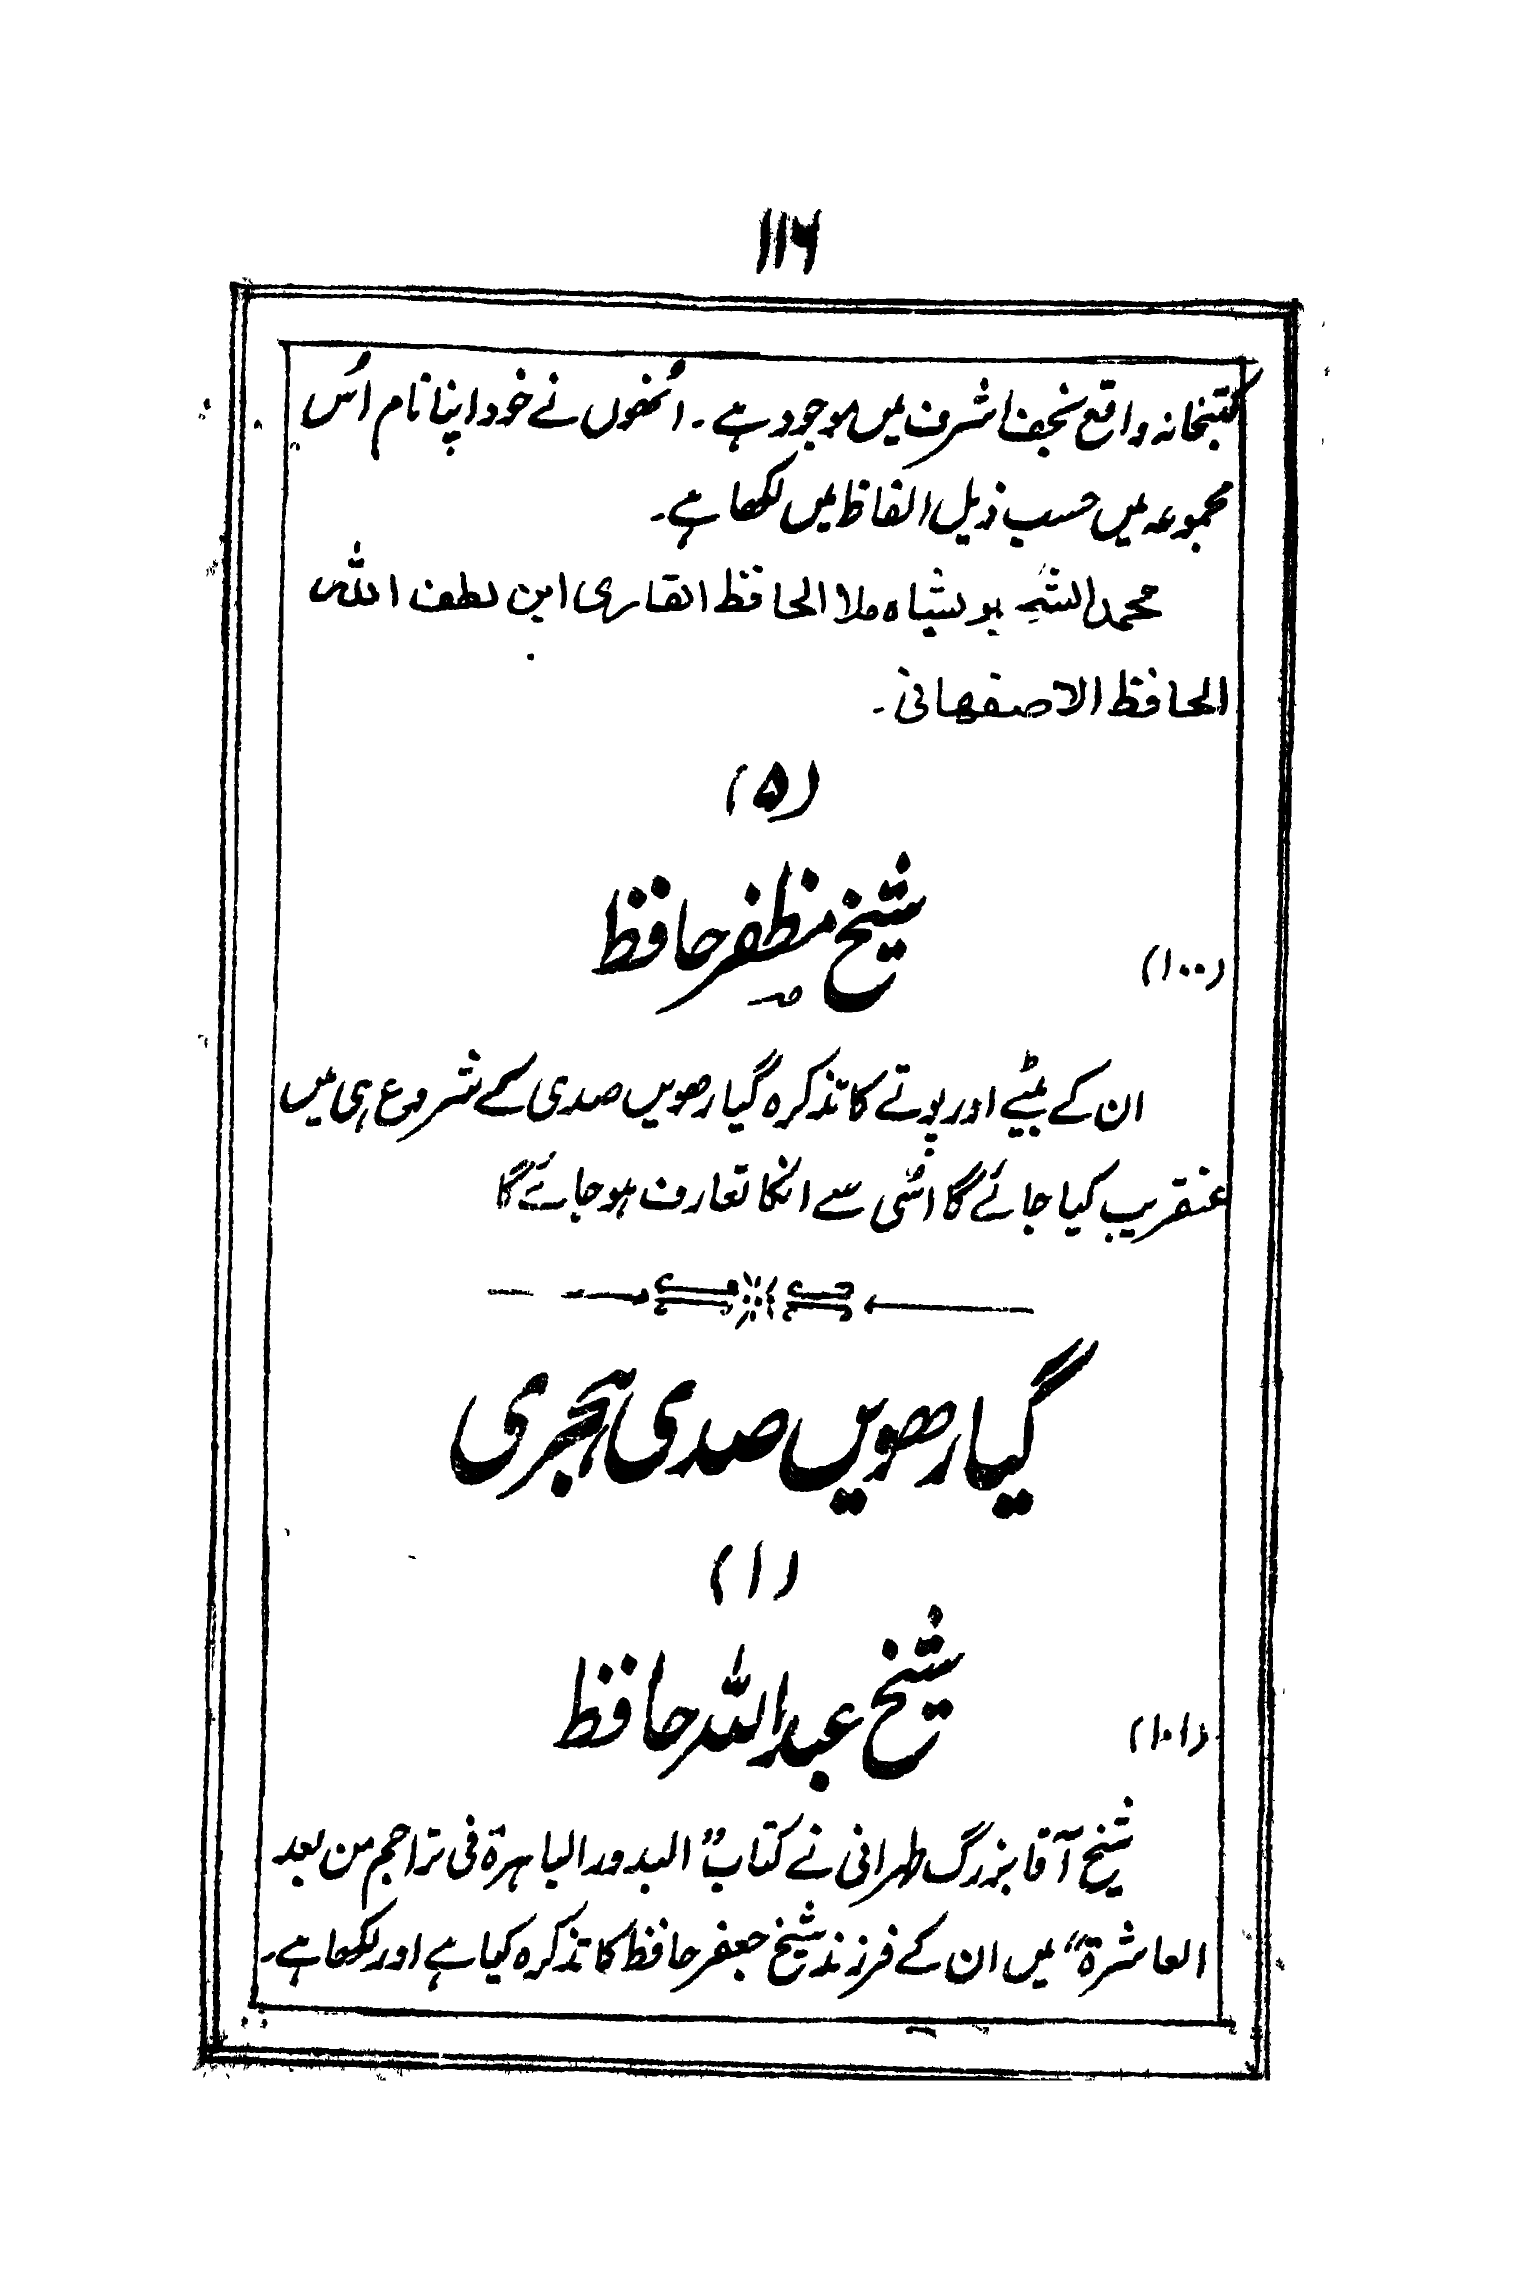 ۱۱۶
کتبخانہ واقع نجف اشرف میں موجود ہے۔ اُنھوں نے خود اپنا نام اُس
مجموعہ میں حسب ذیل الفاظ میں لکھا ہے۔
محمد الشہ بو بشاہ ملا الحافظ القاری ابن لطف اللہ
الحافظ الاصفہانی۔
(۵)
(۱۰۰) شیخ مظفر حافظ
ان کے بیٹے اور پوتے کا تذکرہ گیارھویں صدی کے شروع ہی میں
عنقریب کیا جائے گا اسُی سے انکا تعارف ہوجائے گا
گیارھویں صدی ہجری
(۱)
(۱۰۱) شیخ عبداللہ حافظ
شیخ آقا بزرگ طہرانی نے کتاب "البدور الباہرۃ فی تراجم من بعد
العاشرۃ" میں ان کے فرزند شیخ جعفر حافظ کا تذکرہ کیا ہے اور لکھا ہے۔